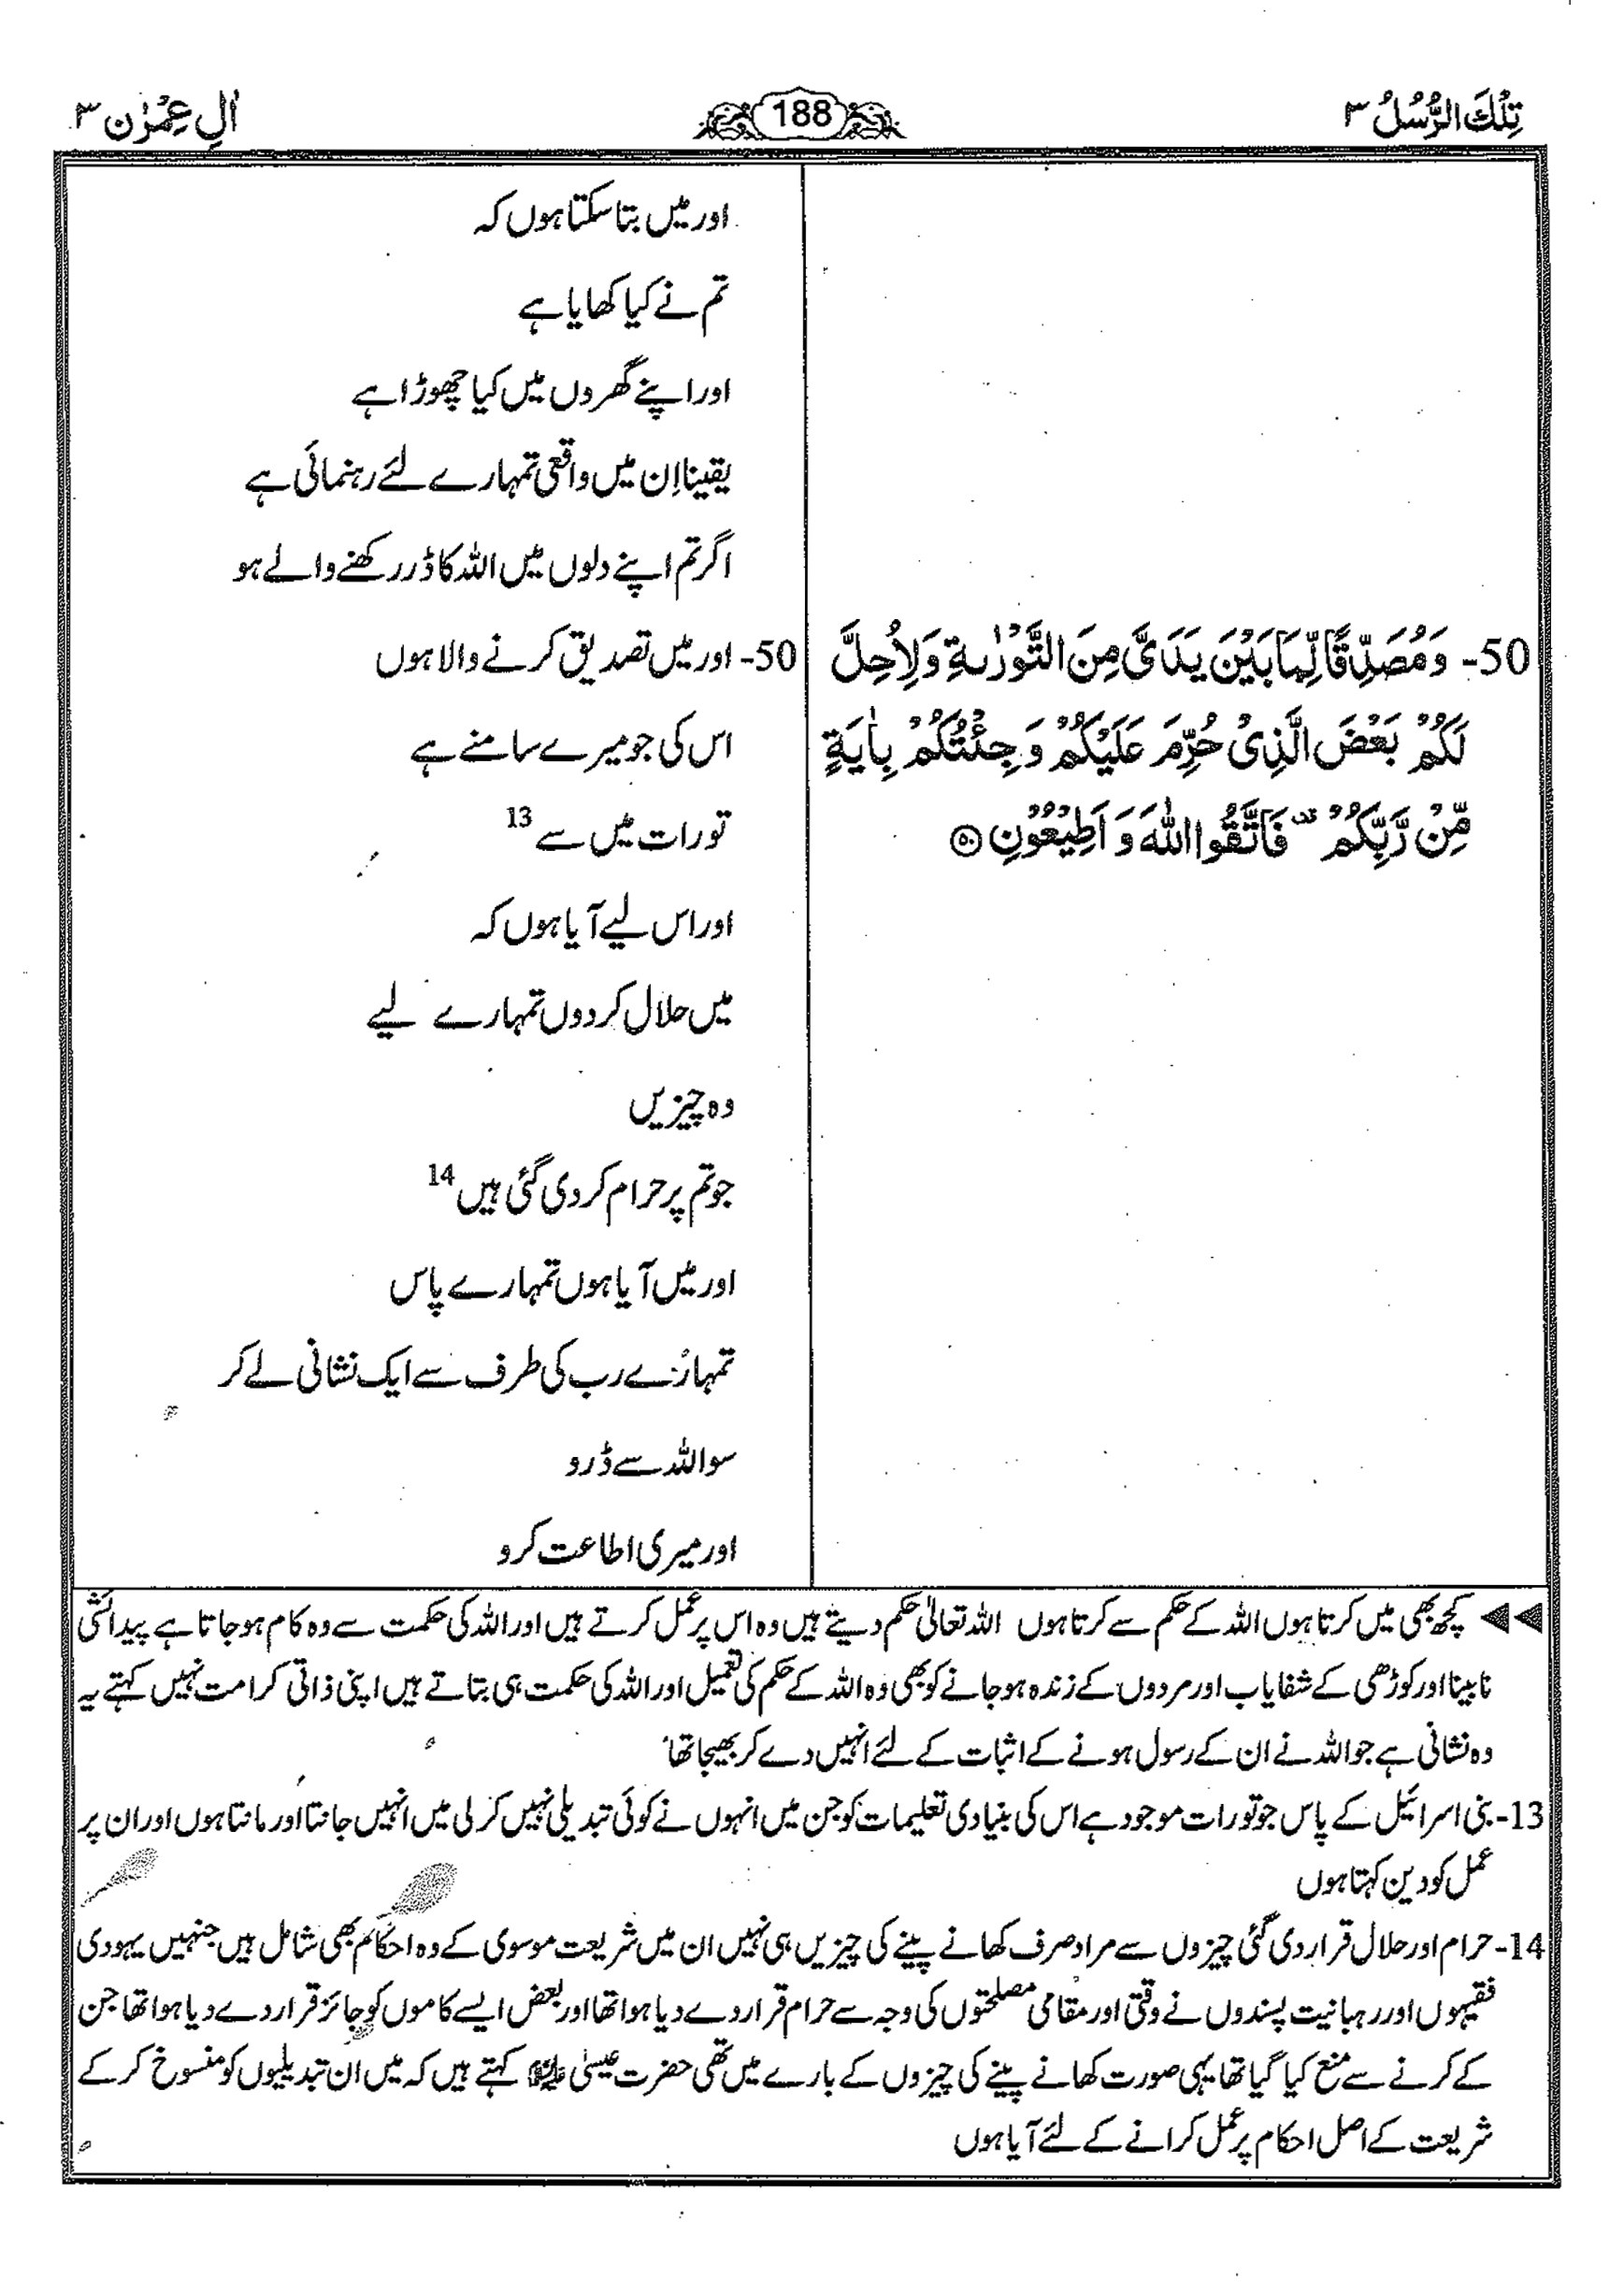 تِلْكَ الرُّسُلُ ۳
188
اٰلِ عِمْرٰن ۳
50- وَمُصَدِّقًا لِّمَا بَيْنَ يَدَيَّ مِنَ التَّوْرٰىةِ وَلِاُحِلَّ
لَكُمْ بَعْضَ الَّذِيْ حُرِّمَ عَلَيْكُمْ وَجِئْتُكُمْ بِاٰيَةٍ
مِّنْ رَّبِّكُمْ ۫ فَاتَّقُوا اللّٰهَ وَ اَطِيْعُوْنِ ۝۵۰
اور میں بتا سکتا ہوں کہ
تم نے کیا کھایا ہے
اور اپنے گھروں میں کیا چھوڑا ہے
یقینا اِن میں واقعی تمہارے لئے رہنمائی ہے
اگر تم اپنے دلوں میں اللہ کا ڈر رکھنے والے ہو
50- اور میں تصدیق کرنے والا ہوں
اس کی جو میرے سامنے ہے
تورات میں سے 13
اور اس لیے آیا ہوں کہ
میں حلال کر دوں تمہارے لیے
وہ چیزیں
جو تم پر حرام کر دی گئی ہیں 14
اور میں آیا ہوں تمہارے پاس
تمہارے رب کی طرف سے ایک نشانی لے کر
سو اللہ سے ڈرو
اور میری اطاعت کرو
◄◄ کچھ بھی میں کرتا ہوں اللہ کے حکم سے کرتا ہوں اللہ تعالیٰ حکم دیتے ہیں وہ اس پر عمل کرتے ہیں اور اللہ کی حکمت سے وہ کام ہو جاتا ہے پیدائشی
نابینا اور کوڑھی کے شفایاب اور مردوں کے زندہ ہو جانے کو بھی وہ اللہ کے حکم کی تعمیل اور اللہ کی حکمت ہی بتاتے ہیں اپنی ذاتی کرامت نہیں کہتے یہ
وہ نشانی ہے جو اللہ نے ان کے رسول ہونے کے اثبات کے لئے انہیں دے کر بھیجا تھا
13- بنی اسرائیل کے پاس جو تورات موجود ہے اس کی بنیادی تعلیمات کو جن میں انہوں نے کوئی تبدیلی نہیں کر لی میں انہیں جانتا اور مانتا ہوں اور ان پر
عمل کو دین کہتا ہوں
14- حرام اور حلال قرار دی گئی چیزوں سے مراد صرف کھانے پینے کی چیزیں ہی نہیں ان میں شریعت موسوی کے وہ احکام بھی شامل ہیں جنہیں یہودی
فقیہوں اور رہبانیت پسندوں نے وقتی اور مقامی مصلحتوں کی وجہ سے حرام قرار دے دیا ہوا تھا اور بعض ایسے کاموں کو جائز قرار دے دیا ہوا تھا جن
کے کرنے سے منع کیا گیا تھا یہی صورت کھانے پینے کی چیزوں کے بارے میں تھی حضرت عیسیٰ علیہ السلام کہتے ہیں کہ میں ان تبدیلیوں کو منسوخ کر کے
شریعت کے اصل احکام پر عمل کرانے کے لئے آیا ہوں